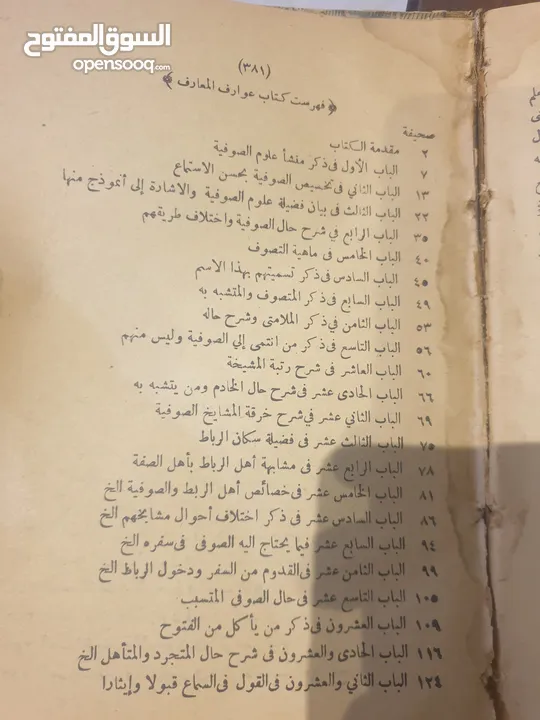 السوق المفتوح
opensooq.com
(٣٨١)
﴿فهرست كتاب عوارف المعارف﴾
صحيفة
٢ مقدمة الكتاب
٧ الباب الأول فى ذكر منشأ علوم الصوفية
١٣ الباب الثاني فى تخصيص الصوفية بحسن الاستماع
٢٢ الباب الثالث فى بيان فضيلة علوم الصوفية والاشارة إلى أنموذج منها
٣٥ الباب الرابع في شرح حال الصوفية واختلاف طريقهم
٤٠ الباب الخامس فى ماهية التصوف
٤٥ الباب السادس فى ذكر تسميتهم بهذا الاسم
٤٩ الباب السابع فى ذكر المتصوف والمتشبه به
٥٣ الباب الثامن في ذكر الملامتى وشرح حاله
٥٦ الباب التاسع فى ذكر من انتمى إلي الصوفية وليس منهم
٦٠ الباب العاشر فى شرح رتبة المشيخة
٦٦ الباب الحادى عشر فى شرح حال الخادم ومن يتشبه به
٦٩ الباب الثاني عشر في شرح خرقة المشايخ الصوفية
٧٥ الباب الثالث عشر فى فضيلة سكان الرباط
٧٨ الباب الرابع عشر فى مشابهة أهل الرباط بأهل الصفة
٨١ الباب الخامس عشر فى خصائص أهل الربط والصوفية الخ
٨٦ الباب السادس عشر فى ذكر اختلاف أحوال مشايخهم الخ
٩٤ الباب السابع عشر فيما يحتاج اليه الصوفى فى سفره الخ
٩٩ الباب الثامن عشر فى القدوم من السفر ودخول الرباط الخ
١٠٥ الباب التاسع عشر فى حال الصوفى المتسبب
١٠٩ الباب العشرون فى ذكر من يأكل من الفتوح
١١٦ الباب الحادى والعشرون فى شرح حال المتجرد والمتأهل الخ
١٢٤ الباب الثاني والعشرون فى القول فى السماع قبولا وإيثارا